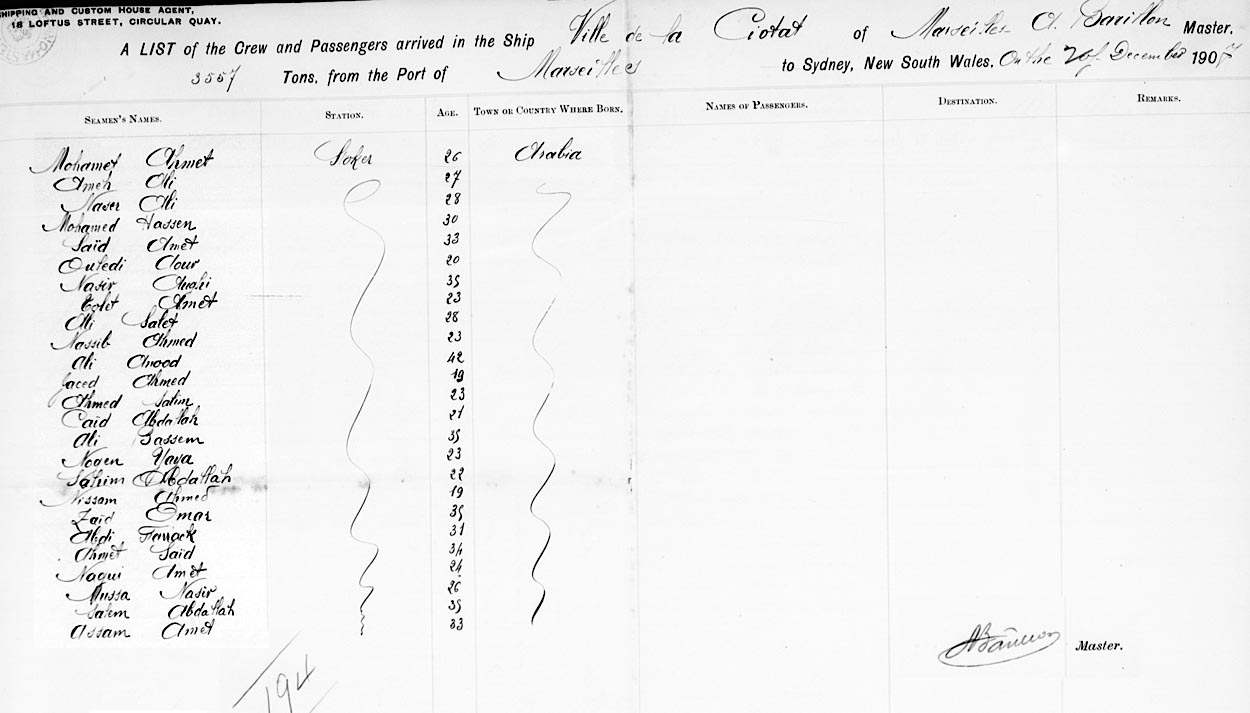 SHIPPING AND CUSTOM HOUSE AGENT,
18 LOFTUS STREET, CIRCULAR QUAY.
A LIST of the Crew and Passengers arrived in the Ship Ville de la Ciotat of Marseilles A. Barillon Master.
3557 Tons, from the Port of Marseilles to Sydney, New South Wales, On the 2 of December 1907
SEAMEN'S NAMES. STATION. AGE. TOWN OR COUNTRY WHERE BORN. NAMES OF PASSENGERS. DESTINATION. REMARKS.
Mohamet Ahmet Soker 26 Arabia
Ameh Ali 27
Naser Ali 28
Mohamed Hassen 30
Saïd Amet 33
Ouledi Aour 20
Nasir 35
Amet 23
Ali Salet 28
Nassib Ahmed 23
Ali Awood 42
Jaced Ahmed 19
Ahmed Salim 23
Caïd Abdallah 21
Ali Bassem 35
Nogen Yava 23
Sahim Abdallah 22
Nissam Ahmed 19
Zaid Omar 35
Abdi Farrack 31
Ahmet Saïd 34
Nagui Amet 24
Mussa Nasir 26
Salem Abdallah 35
Assam Amet 33
ABarillon Master.
194